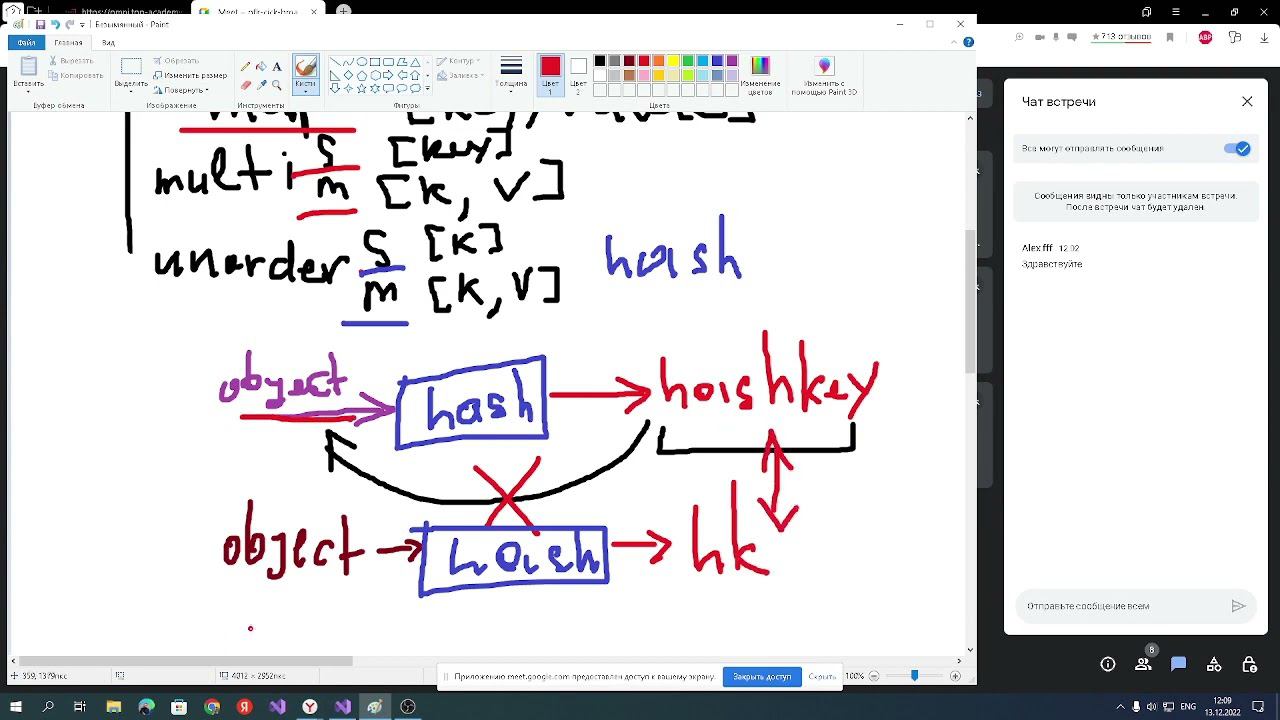 Безымянный - Paint
Файл Главная Вид
Вставить
Вырезать
Копировать
Буфер обмена
Выделить
Изменить размер
Повернуть
Изображение
Инструменты
Кисти
Контур
Заливка
Фигуры
Толщина
Цвет 1
Цвет 2
Изменение цветов
Цвета
Изменить с помощью Paint 3D
713 отзывов
ABP
multi s [key]
m [k, v]
unorder s [k]
m [k, v]
hash
object hash hashkey
object hash hk
4012 × 2952пкс
100%
Приложению meet.google.com предоставлен доступ к вашему экрану.
Закрыть доступ
Скрыть
Чат встречи
Все могут отправлять сообщения
Сообщения видны только участникам встречи.
После встречи чат будет удален.
Alex fff 12:02
Здравствуйте
Отправьте сообщение всем
8
12:09
13.12.2022